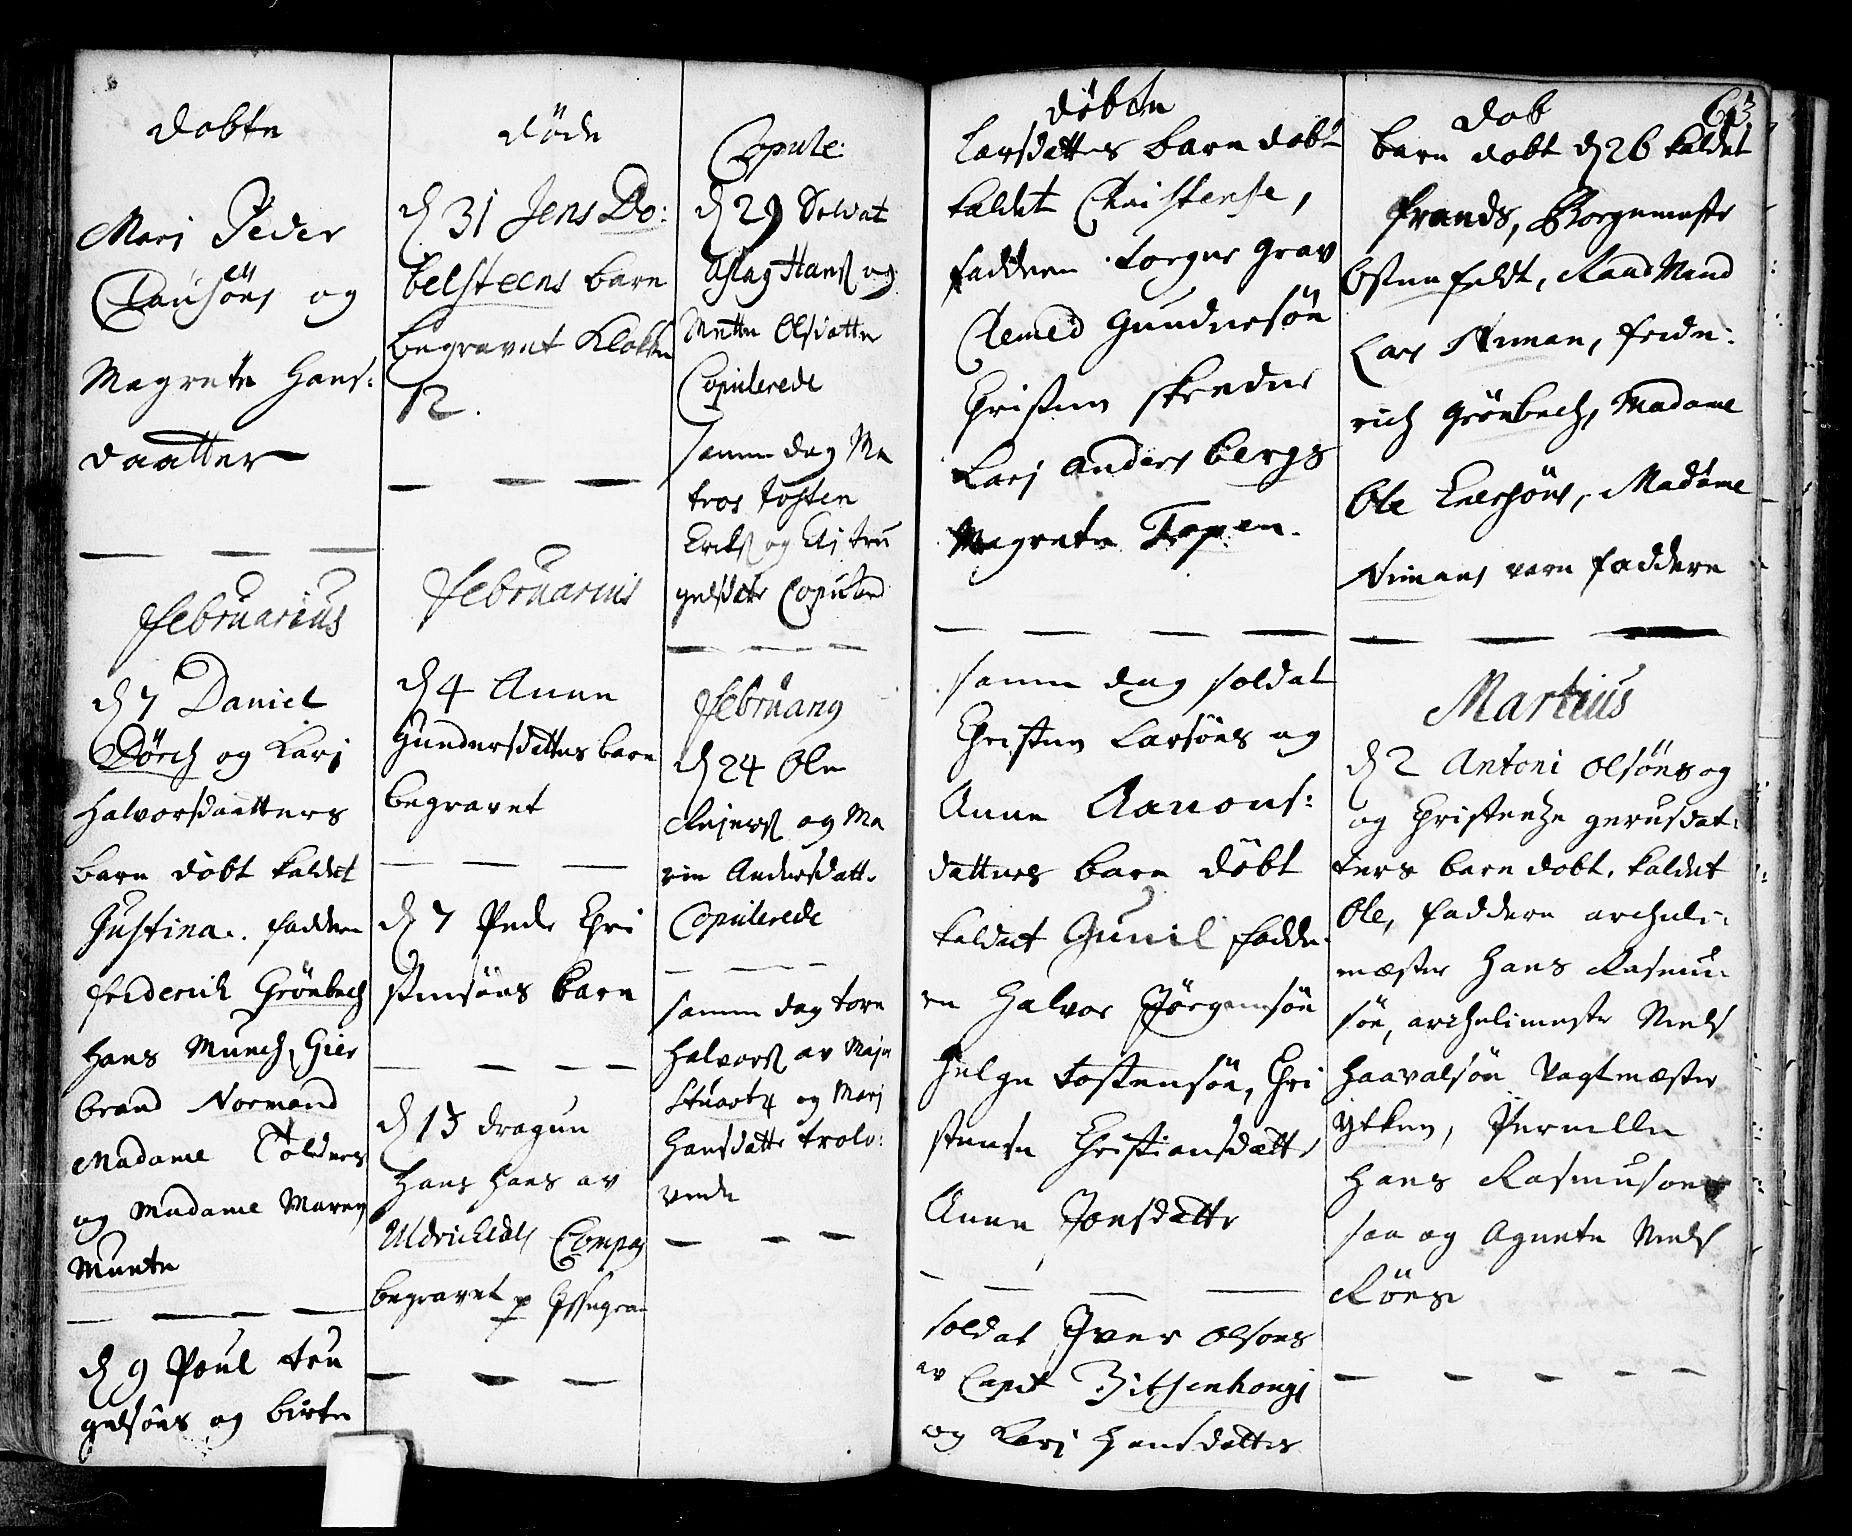 Døbte
Marj Peder
Clausøns og
Magrete Hans:
daatter
Februarius
d 7 Daniel
Dørch og Karj
Halvorsdaatters
barn døbt kaldet
Justina. faddere
friderich Grønbech
Hans Munch, Gier
brand Normand
Madame Tolders
og Madame Maren
Munte
d 9 Poul tru
gelsøns og birte
Døde
d 31 Jens Do:
belsteens barn
begravet Klokken
12.
Februarius
d 4 Anne
Gundersdatters barn
begravet
d 7 Peder Chri
stensøns barn
d 13 dragun
Hans Hans av
Uldrichdals Compag
begravet
Copule:
d 29 Soldat
Aslag Hanss og
Mette Olsdatter
Copulerede
samme dag Ma
tros Tosten
Erikss og Astru
gulsdatr Copulered
February
d 24 Ole
Rejerss og Ma
rin Andersdatt.
Copulerede
samme dag tore
Halvorss av Maju
Stuart og Marj
Hansdatter trolo:
vede
Døbte
Larsdatters barn dobt
kaldet Christense,
faddern Torger Grav
Clemed Gundersøn
Christen skreder
Karj Anders bergs
Magrete Topen.
samme dag soldat
Christen Larsøns og
Anne Aanons:
datters barn døbt
kaldet Gunil fadde
re Halvor Jørgensøn
Helge Tostensøn, Chri
stense Christiansdatter
Anne Jonsdattr
soldat Iver Olsøns
av Capit Zitsenhongs
og Karj Hansdatters
Døb
613
barn dobt d 26 kaldet
frands, Borgemestr
Ostenfeldt, Raad Mand
Lars Niman, fride:
rich Grønbech, Madame
Ole Enersøns, Madame
Nimans vare faddere
Martius
d 2 Antoni Olsøns og
og Christentze gerusdat:
ters barn dobt, kaldet
Ole, faddere archeli:
mæster Hans Rasmu:
søn, archelimestr Niels
Haavalsøn Vagtmæster
ytken, Pernelle
Hans Rasmusøns
saa og Agnete Niels
Røns